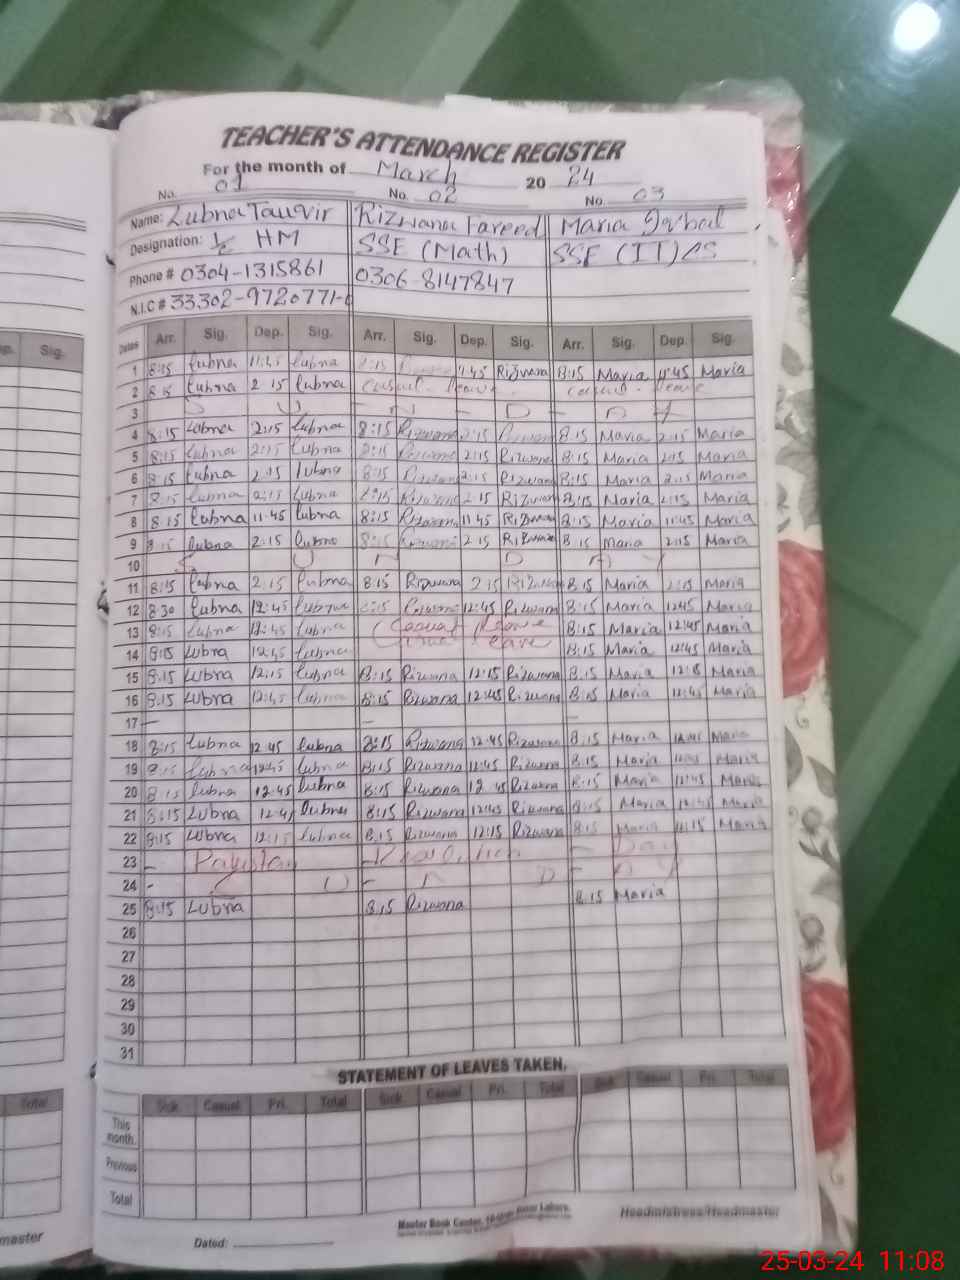 TEACHER'S ATTENDANCE REGISTER
For the month of March 20 24
No. 01 No. 02 No. 03
Name: Lubna Tauvir Rizwana Fareed Maria Iqbal
Designation: I/C HM SSE (Math) SSE (IT)/CS
Phone # 0304-1315861 0306-8147847
N.I.C # 33302-9720771-
Dates Arr. Sig. Dep. Sig. Arr. Sig. Dep. Sig. Arr. Sig. Dep. Sig.
ep. Sig.
1 8:15 Lubna 11:45 Lubna 8:15 11:45 Rizwana 8:15 Maria 11:45 Maria
2 8:15 Lubna 2:15 Lubna Casual leave casual leave
3 S U - N - D - A Y
4 8:15 Lubna 2:15 Lubna 8:15 Rizwana 2:15 Rizwana 8:15 Maria 2:15 Maria
5 8:15 Lubna 2:15 Lubna 8:15 Rizwana 2:15 Rizwana 8:15 Maria 2:15 Maria
6 8:15 Lubna 2:15 Lubna 8:15 Rizwana 2:15 Rizwana 8:15 Maria 2:15 Maria
7 8:15 Lubna 2:15 Lubna 8:15 Rizwana 2:15 Rizwana 8:15 Maria 2:15 Maria
8 8:15 Lubna 11:45 Lubna 8:15 Rizwana 11:45 Rizwana 8:15 Maria 11:45 Maria
9 8:15 Lubna 2:15 Lubna 8:15 Rizwana 2:15 Rizwana 8:15 Maria 2:15 Maria
10 S U N D A Y
11 8:15 Lubna 2:15 Lubna 8:15 Rizwana 2:15 Rizwana 8:15 Maria 2:15 Maria
12 8:30 Lubna 12:45 Lubna 8:15 Rizwana 12:45 Rizwana 8:15 Maria 12:45 Maria
13 8:15 Lubna 12:45 Lubna Casual leave 8:15 Maria 12:45 Maria
14 8:15 Lubna 12:45 Lubna Casual leave 8:15 Maria 12:45 Maria
15 8:15 Lubna 12:15 Lubna 8:15 Rizwana 12:15 Rizwana 8:15 Maria 12:15 Maria
16 8:15 Lubna 12:45 Lubna 8:15 Rizwana 12:45 Rizwana 8:15 Maria 12:45 Maria
17 - - -
18 8:15 Lubna 12:45 Lubna 8:15 Rizwana 12:45 Rizwana 8:15 Maria 12:45 Maria
19 8:15 Lubna 12:45 Lubna 8:15 Rizwana 12:45 Rizwana 8:15 Maria 12:45 Maria
20 8:15 Lubna 12:45 Lubna 8:15 Rizwana 12:45 Rizwana 8:15 Maria 12:45 Maria
21 8:15 Lubna 12:45 Lubna 8:15 Rizwana 12:45 Rizwana 8:15 Maria 12:45 Maria
22 8:15 Lubna 12:15 Lubna 8:15 Rizwana 12:15 Rizwana 8:15 Maria 12:15 Maria
23 - Pakistan - - Day
24 - S U - N D - A Y
25 8:15 Lubna 8:15 Rizwana 8:15 Maria
26
27
28
29
30
31
STATEMENT OF LEAVES TAKEN.
Sick Casual Pri. Total Sick Casual Pri. Total Sick Casual Pri. Total
Total
This month.
Previous
Total
Master Book Center, Lahore.
Headmistress/Headmaster
master
Dated:
25-03-24 11:08